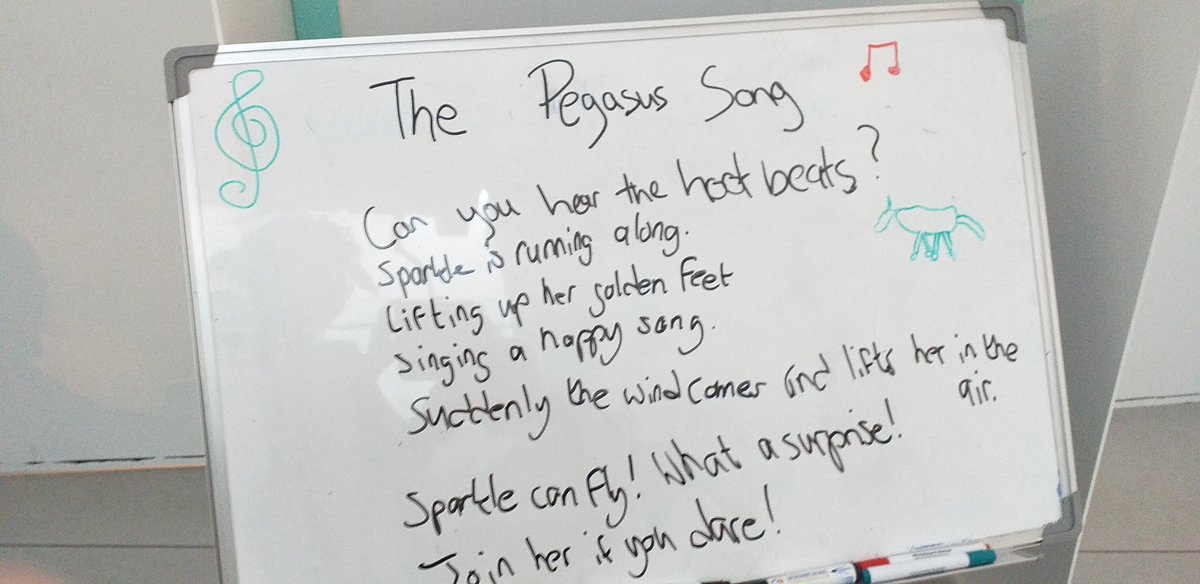 The Pegasus Song
Can you hear the hoof beats?
Sparkle is running along.
Lifting up her golden feet
singing a happy song.
Suddenly the wind comes and lifts her in the
air.
Sparkle can fly! What a surprise!
Join her if you dare!